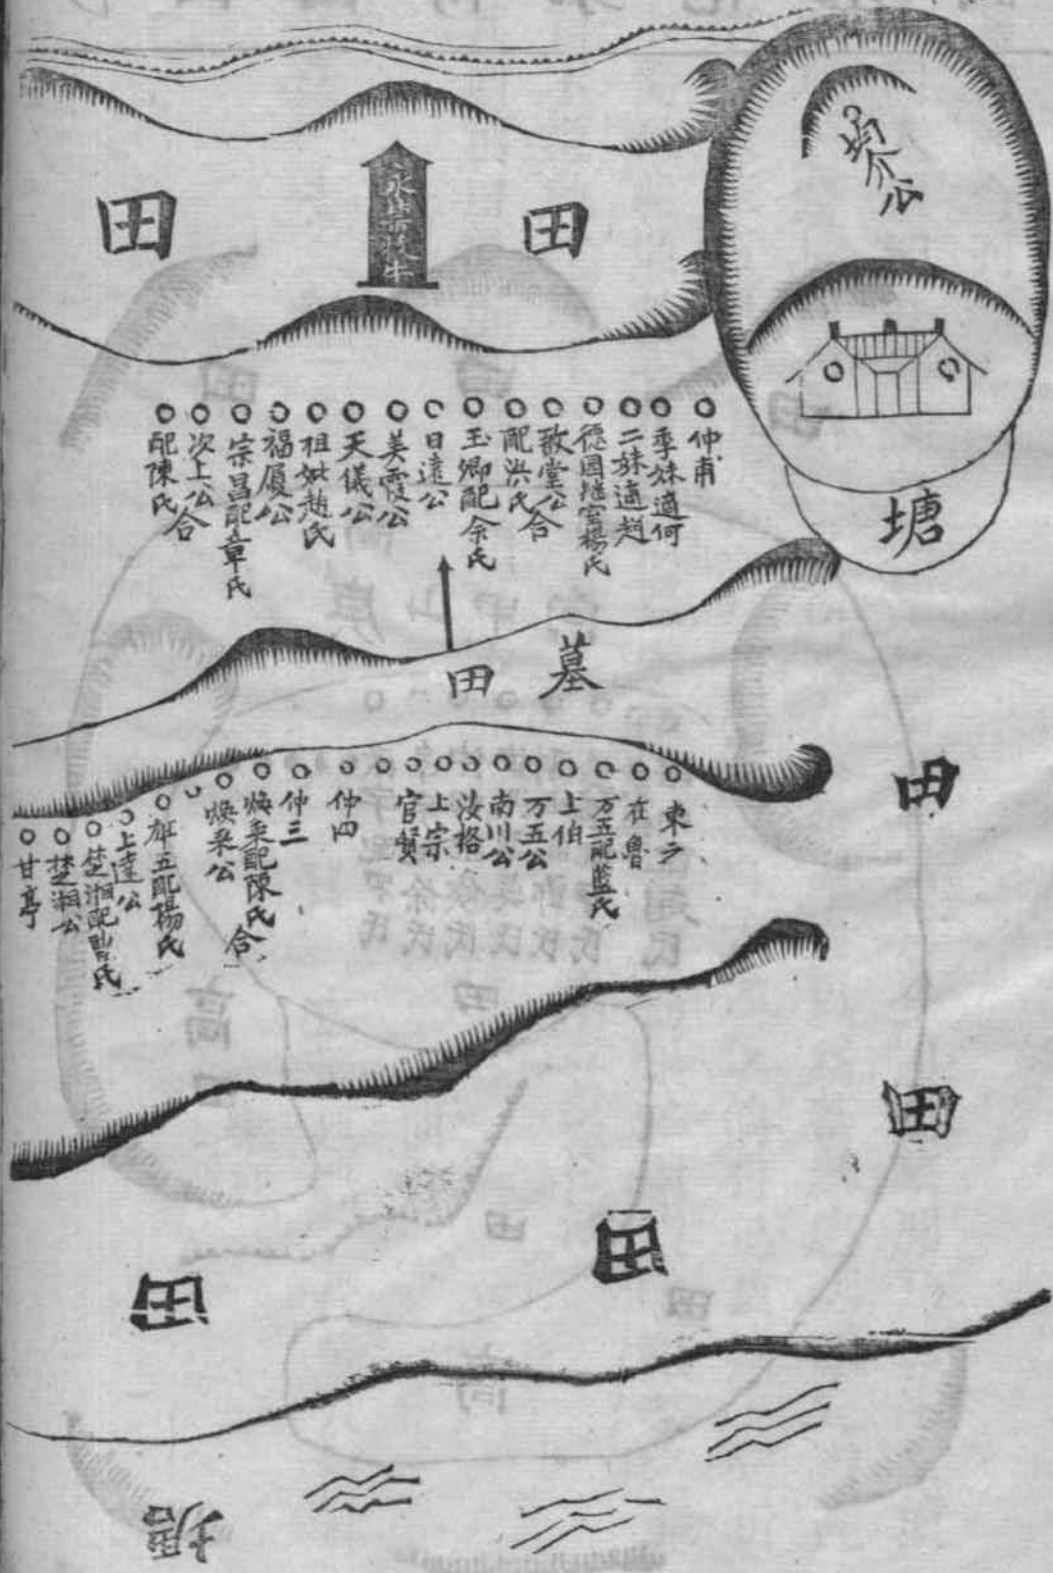 田
永禁牧牛
田
公
塘
仲甫
季妹適何
二妹適趙
德園继室楊氏
敬堂公合
配洪氏
玉卿配余氏
日遠公
美霞公
天儀公
祖妣趙氏
福厦公
宗昌配章氏
次上公合
配陳氏
墓田
田
東
在魯
万五配藍氏
上伯
万五公
南川公
汝格
上宗
官賢
仲四
仲三
煥来配陳氏合
煥来公
五配楊氏
上達公
楚湘配曹氏
楚湘公
甘亭
田
田
田
塘